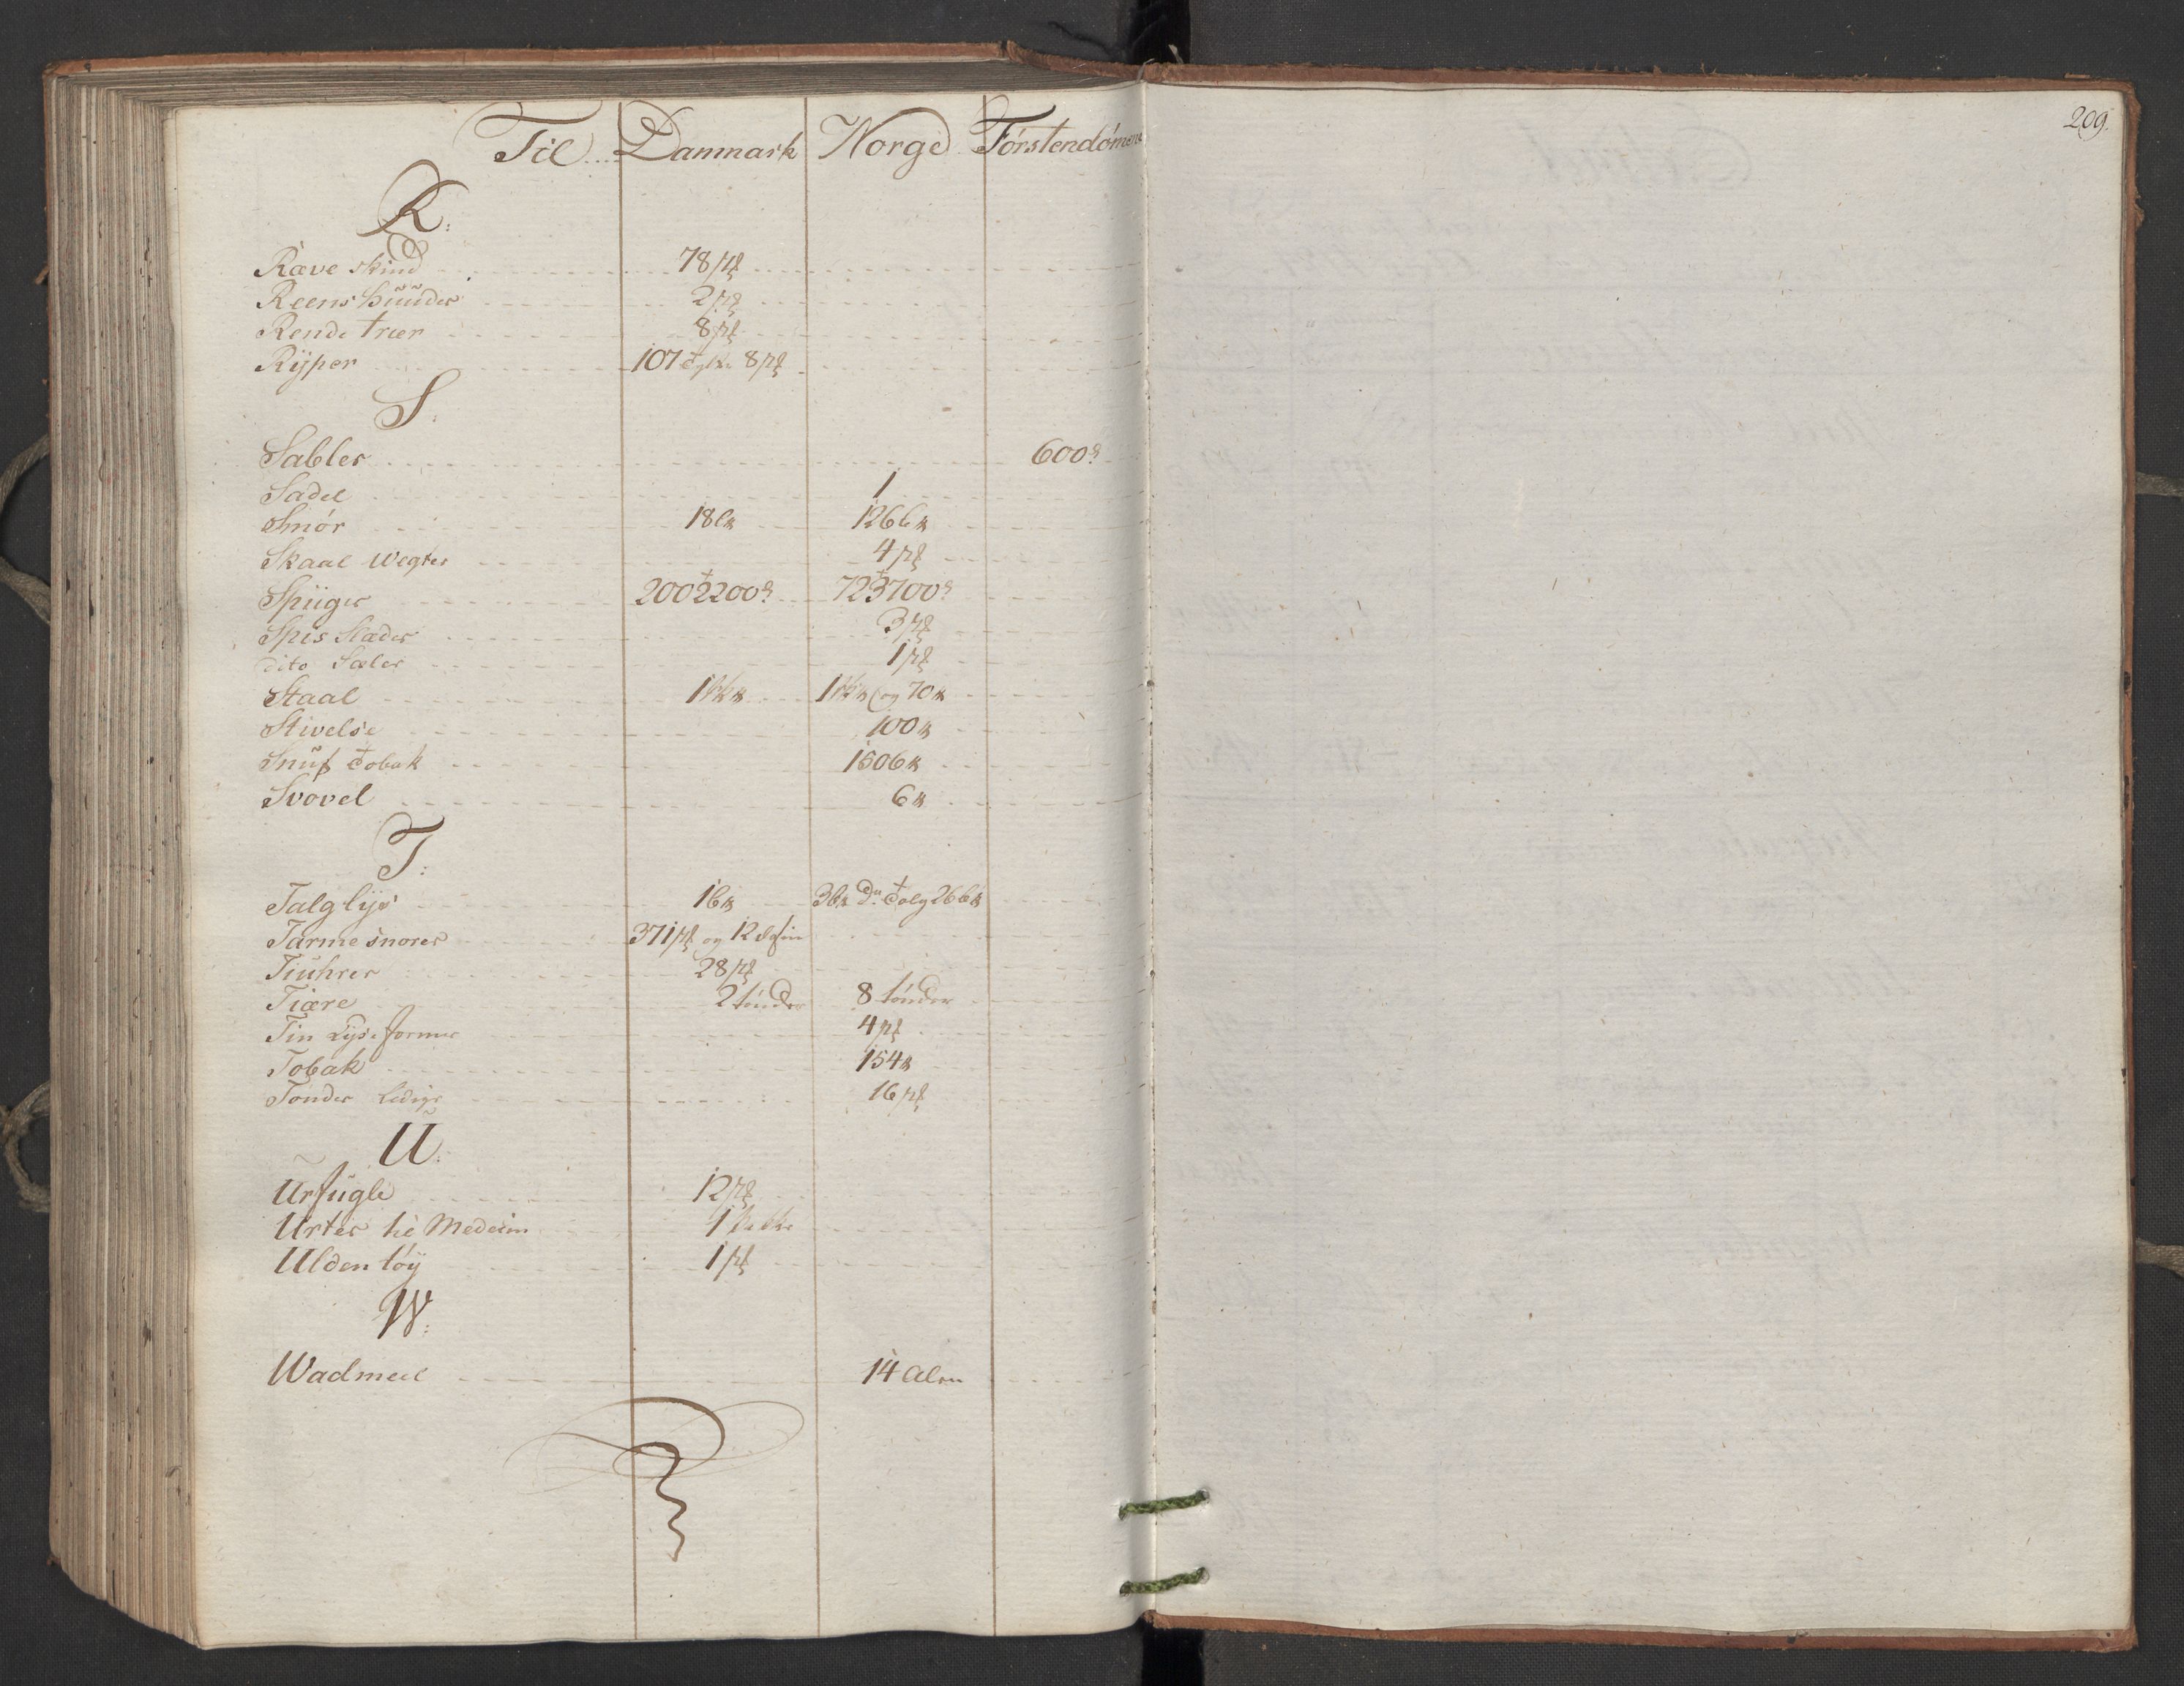 209.
Til Danmark Norge Förstendömene
R:
Ræve skind 78 p#
Reens huuder 2 p#
Rende træer 8 p#
Rÿper 107 8 p#
S:
Sabler 600
Sadel 1
Smör 18 126
Skaal Wegter 4 p#
Spiiger 200 2200 72 3700
Spis Slæder 3 p#
dito Sæler 1 p#
Staal 1 1 og 70
Stivelse 100
Snuf Tobak 1506
Svovel 6
T:
Talg lÿs 16 36 Do Tolg 266
Tarme snorer 371 p# og 12 dosin
Tiuhrer 28 p#
Tiære 2 tönder 8 tönder
Tin Lÿse former 4 p#
Tobak 154
Tönder Ledige 16 p#
U:
Urfugle 12 p#
Urter til Medecin 1 Pakke
Ulden töÿ 1 p#
W:
Wadmeel 14 Alen